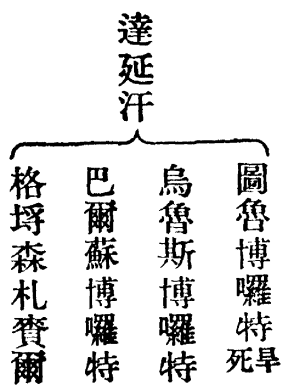 達延汗
圖魯博囉特
早死
烏魯斯博囉特
巴爾蘇博囉特
格埒森札賚爾